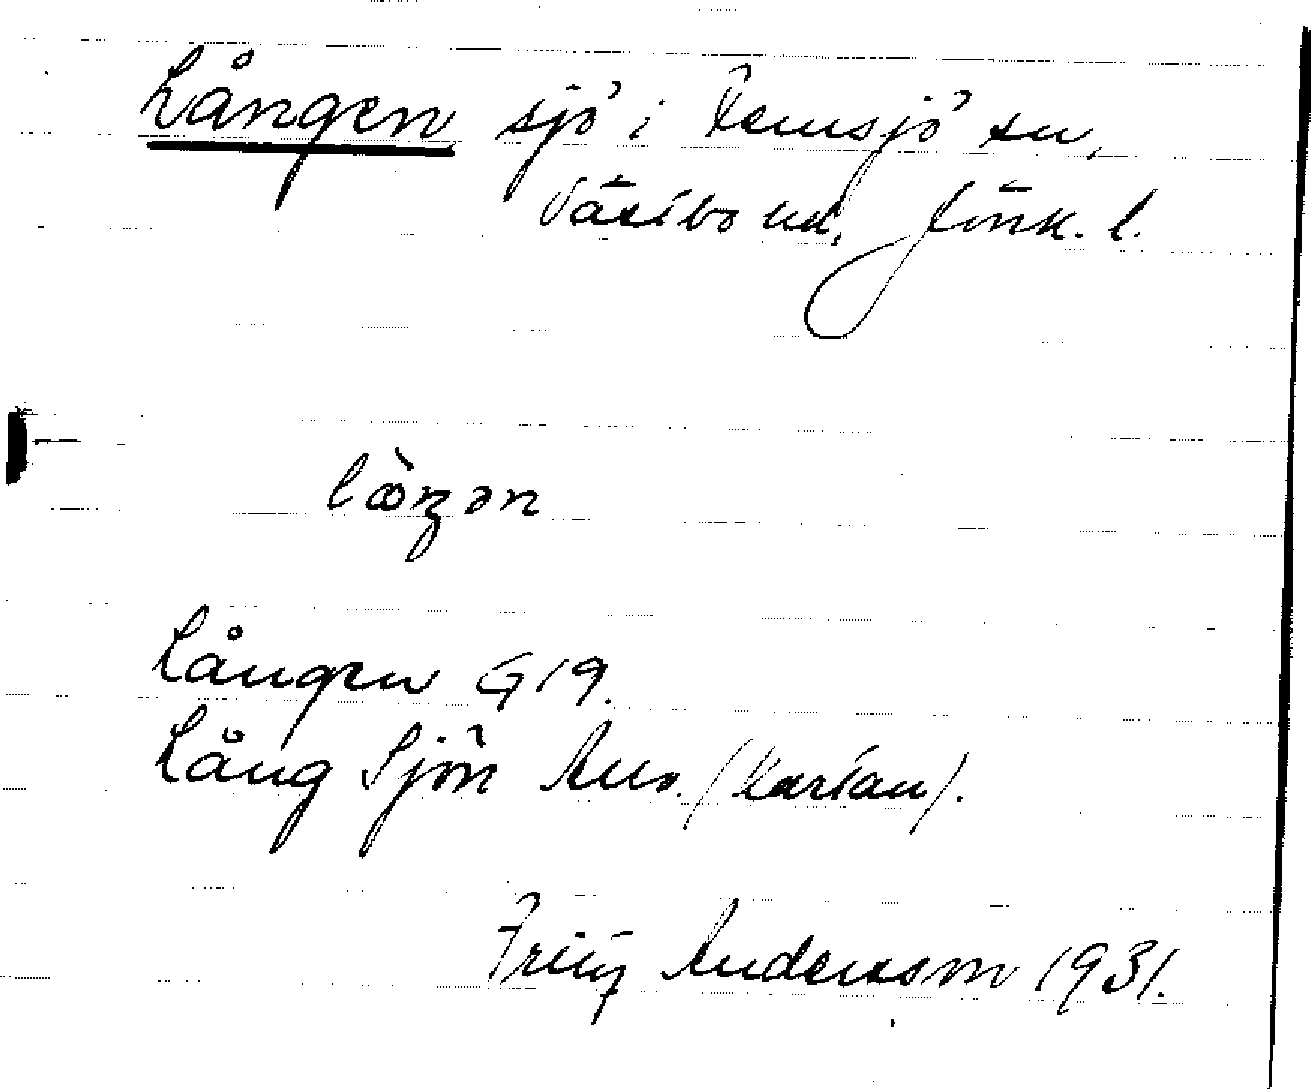 Lången sjö i Femsjö sn,
Västbo hd, Jönk. l.
lòŋən
Lången G 19.
Lång Sjön Ans. (Kartan).
Fritz Andersson 1931.